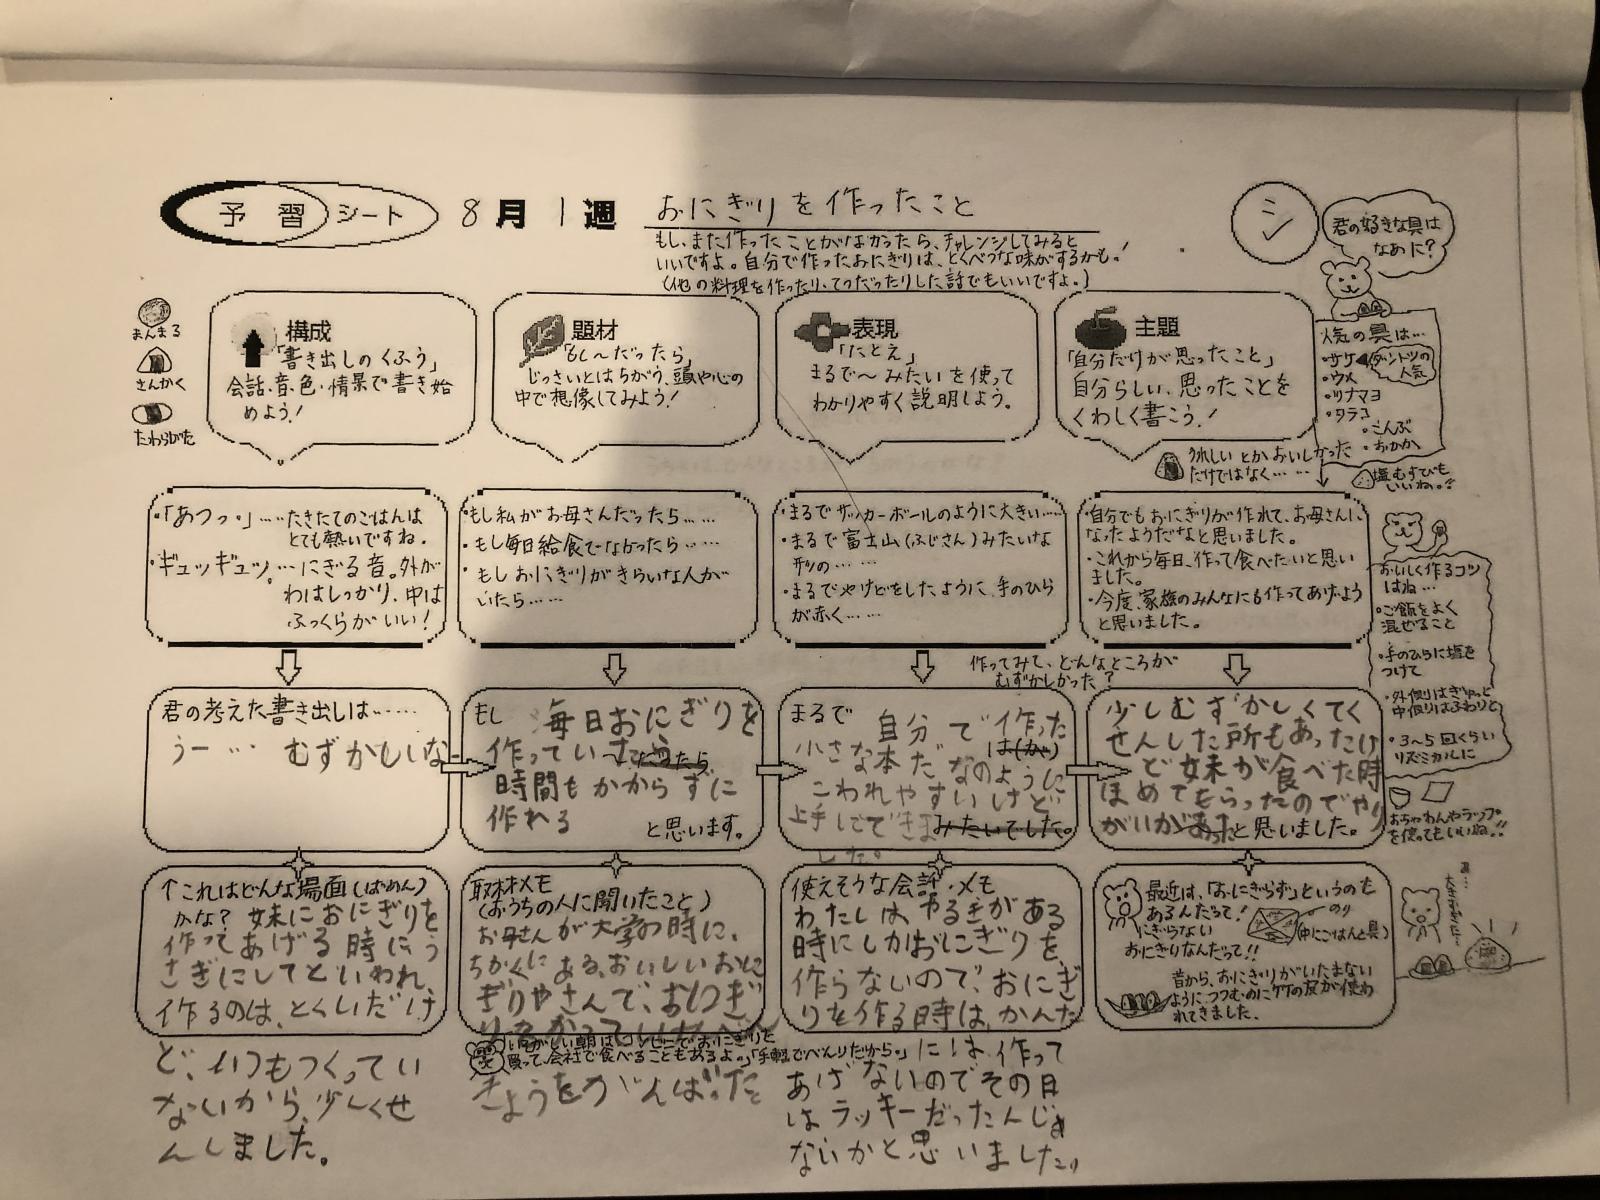 予習シート 8月1週 おにぎりを作ったこと
もし、まだ作ったことがなかったら、チャレンジしてみると
いいですよ。自分で作ったおにぎりは、とくべつな味がするかも!
(他の料理を作ったり、てつだったりした話でもいいですよ。)
シ
君の好きな具は
なあに?
まんまる
さんかく
たわらがた
構成
「書き出しのくふう」
会話・音・色・情景で書き始
めよう!
題材
「もし〜だったら」
じっさいとはちがう、頭や心の
中で想像してみよう!
表現
「たとえ」
まるで〜みたいを使って
わかりやすく説明しよう。
主題
「自分だけが思ったこと」
自分らしい、思ったことを
くわしく書こう!
人気の具は…
・サケ
ダントツの
人気
・ウメ
・ツナマヨ
・タラコ
・こんぶ
・おかか
うれしいとかおいしかった
だけではなく……
塩むすびも
いいね。!!
・「あつっ。」……たきたてのごはんは
とても熱いですね。
・ギュッギュッ。…にぎる音。外が
わはしっかり、中は
ふっくらがいい!
・もし私がお母さんだったら……
・もし毎日給食でなかったら……
・もしおにぎりがきらいな人が
いたら……
・まるでサッカーボールのように大きい……
・まるで富士山(ふじさん)みたいな
形の……
・まるでやけどをしたように、手のひら
が赤く……
・自分でもおにぎりが作れて、お母さんに
なったようだなと思いました。
・これから毎日、作って食べたいと思い
ました。
・今度、家族のみんなにも作ってあげよう
と思いました。
おいしく作るコツ
はね…
・ご飯をよく
混ぜること
・手のひらに塩を
つけて
・外側はぎゅっと
中側はふわりと
・3〜5回くらい
リズミカルに
おちゃわんやラップ
を使ってもいいね。!!
作ってみて、どんなところが
むずかしかった?
君の考えた書き出しは……
うー… むずかしいな
もし 毎日おにぎりを
作っていたら
だったら
時間もかからずに
作れる
と思います。
まるで 自分で作った
は(が)
小さな本だなのように
こわれやすいけど
上手しでできま
みたいでした。
した。
少しむずかしくてく
せんした所もあったけ
ど妹が食べた時
ほめてもらったのでやり
がいがあったと思いました。
↑これはどんな場面(ばめん)
かな? 妹におにぎりを
作ってあげる時にう
さぎにしてといわれ、
作るのは、とくいだけ
ど、いつもつくってい
ないから、少しくせ
んしました。
取材メモ
(おうちの人に聞いたこと)
お母さんが大学の時に、
ちかくにある、おいしいおに
ぎりやさんで、おにぎ
いそがしい朝はコンビニでおにぎりを
買って、会社で食べることもあるよ。「手軽でべんりだから。」
きょうをがんばった
使えそうな会話・メモ
わたしは、やる気がある
時にしかおにぎりを、
作らないので、おにぎ
りを作る時は、かんた
には、作って
あげないのでその日
はラッキーだったんじゃ
ないかと思いました。
最近は、「おにぎらず」というのも
あるんだって!
にぎらない
おにぎりなんだって!!
のり
(中にごはんと具)
昔から、おにぎりがいたまない
ように、つつむのに竹の皮が使わ
れてきました。